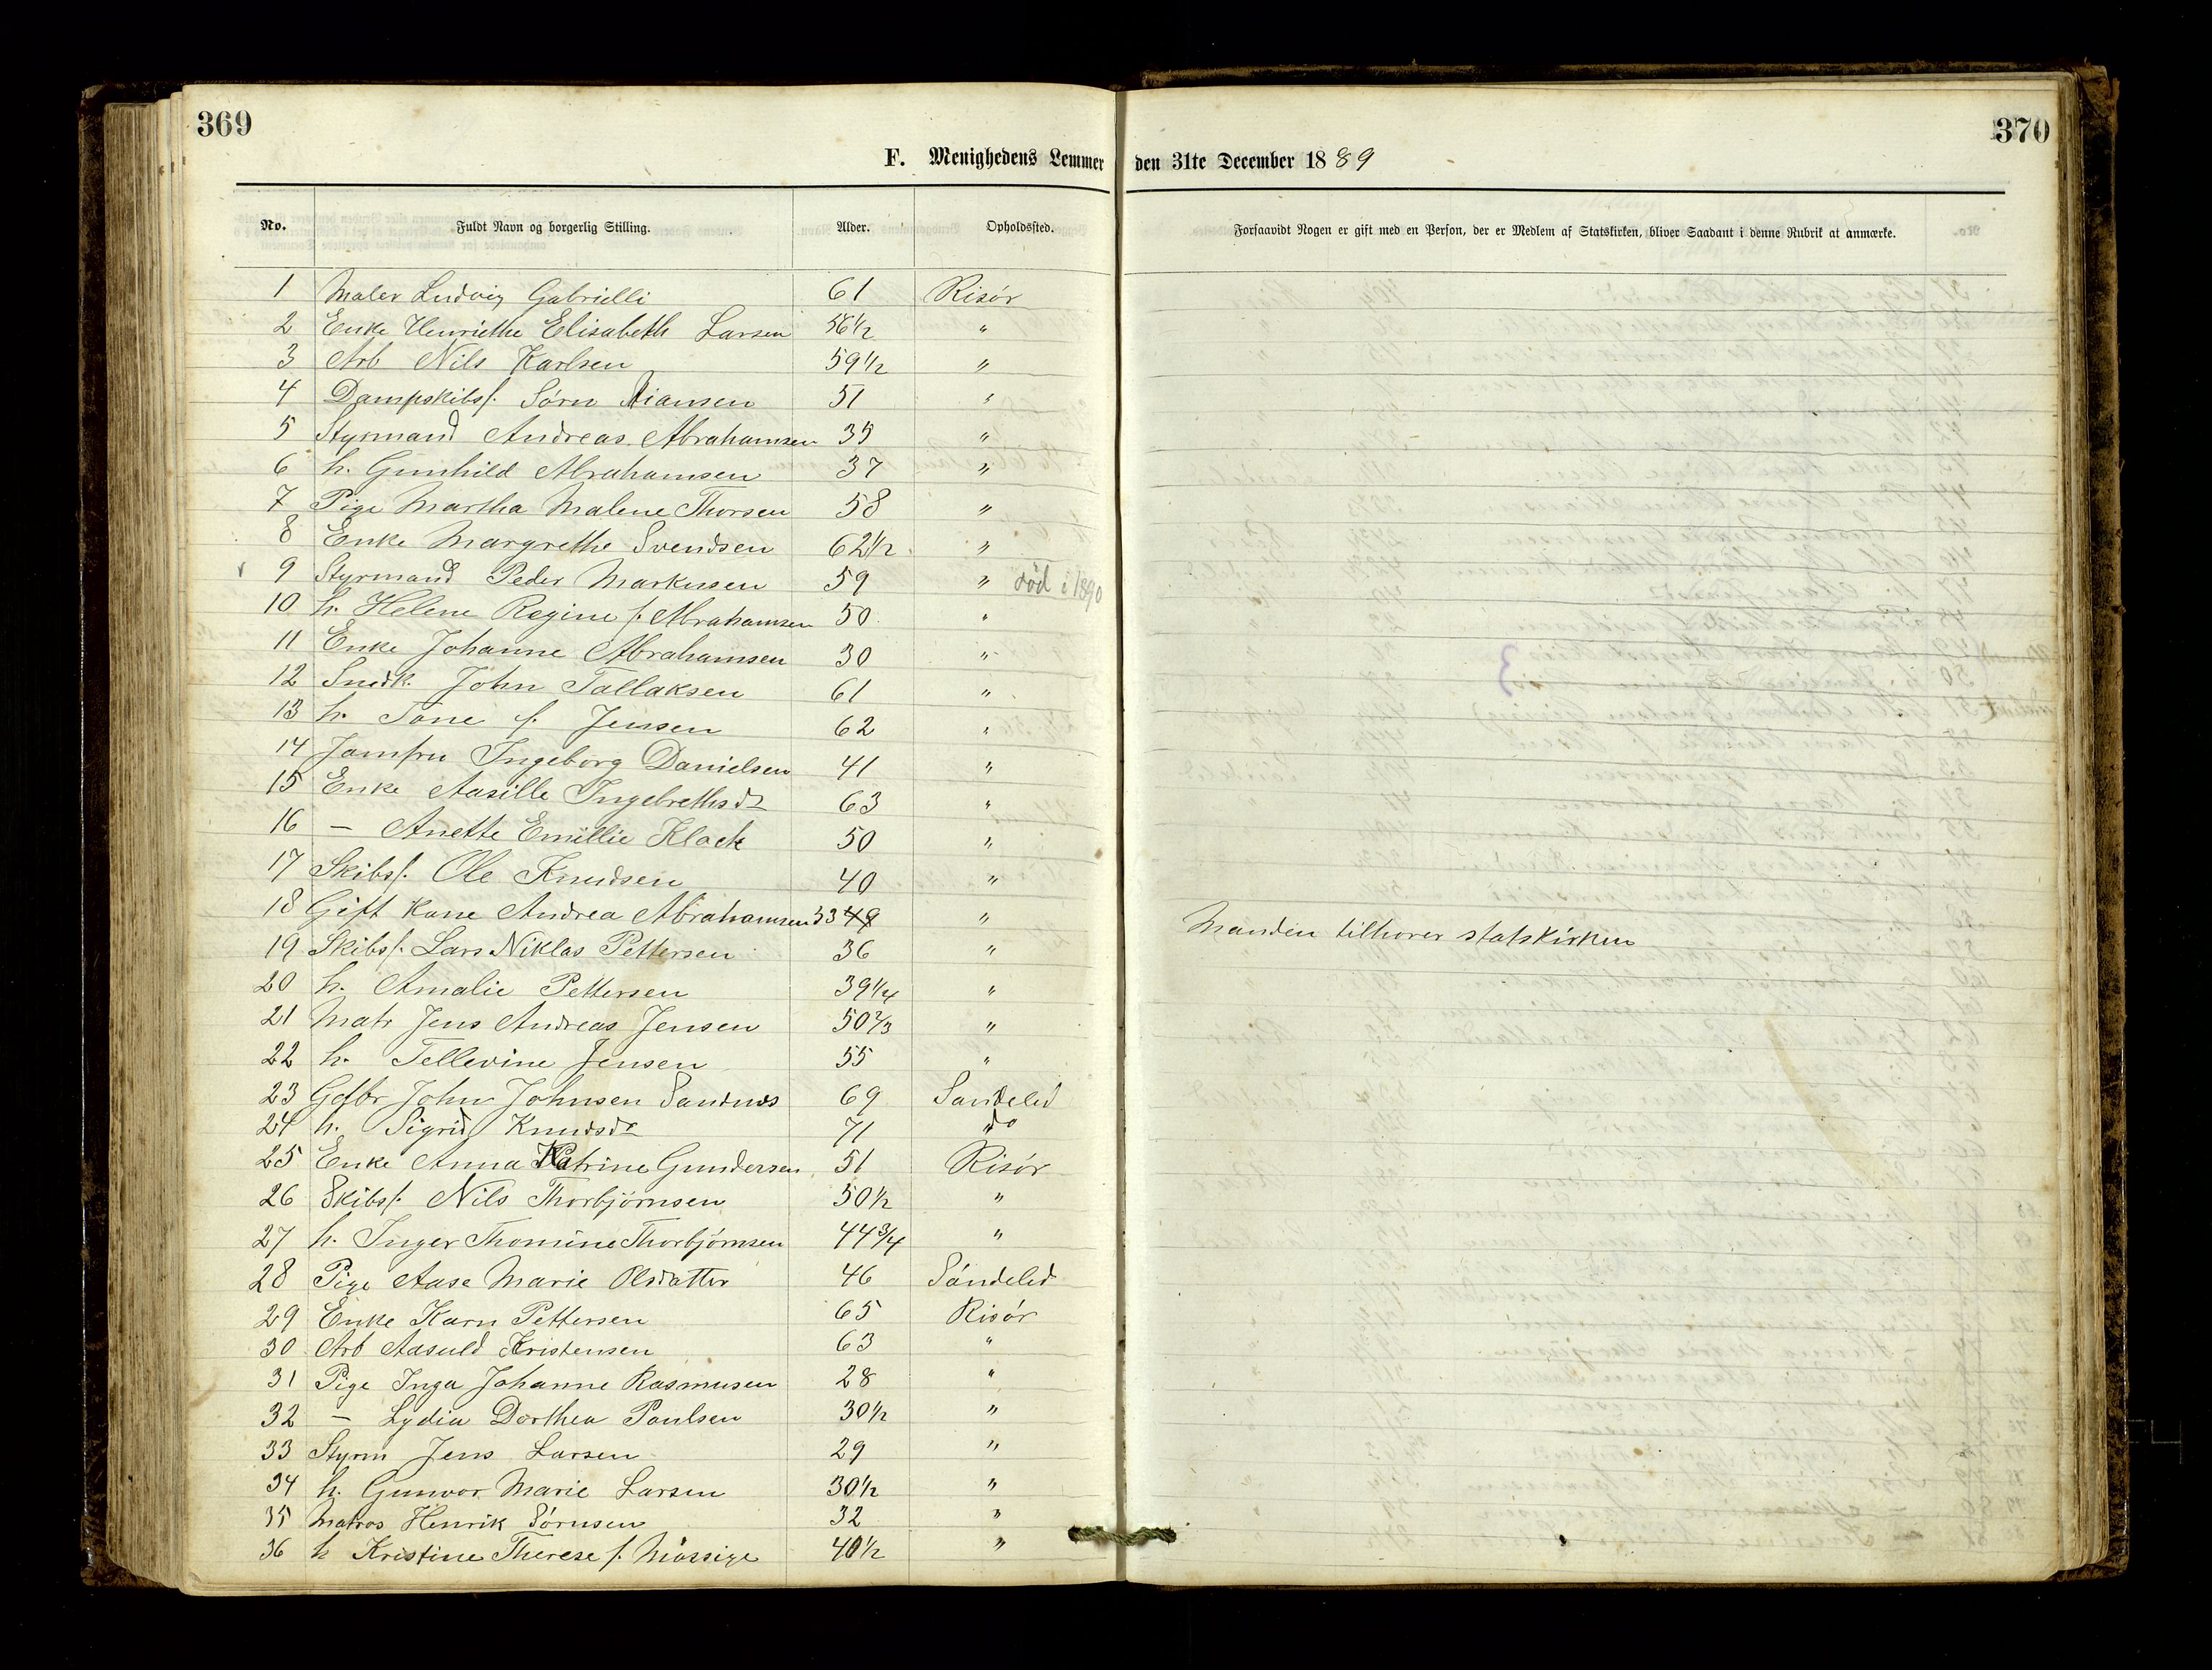 369
370
F. Menighedens Lemmer den 31te December 1889
No. Fuldt Navn og borgerlig Stilling. Alder. Opholdssted. Forsaavidt Nogen er gift med en Person, der er Medlem af Statskirken, bliver Saadant i denne Rubrik at anmærke.
1 Maler Ludvig Gabrielli 61 Risör
2 Enke Henriethe Elisabeth Larsen 56 1/2 "
3 Arb Nils Karlsen 59 1/2 "
4 Dampskibsf. Sörn 51 "
5 Styrmand Andreas Abrahamsen 35 "
6 h. Gunhild Abrahamsen 37 "
7 Pige Martha Malene Thorsen 58 "
8 Enke Margrethe Svendsen 62 1/2 "
9 Styrmand Peder Markussen 59 " död i 1890
10 h. Helene Regine f. Abrahamsen 50 "
11 Enke Johanne Abrahamsen 30 "
12 Snedk. John Tallaksen 61 "
13 h. Tone f. Jensen 62 "
14 Jomfru Ingeborg Danielsen 41 "
15 Enke Aasille Ingebrethsdr 63 "
16 — Anette Emillie Klock 50 "
17 Skibsf. Ole Knudsen 40 "
18 Gift Kone Andrea Abrahamsen 33 49 " Manden tilhorer statskirken
19 Skibsf. Lars Niklas Pettersen 36 "
20 h. Amalie Pettersen 39 1/4 "
21 Matr Jens Andreas Jensen 50 2/3 "
22 h. Tellevine Jensen 55 "
23 Gdbr John Johnsen Sandnes 69 Sandeled
24 h. Sigrid Knudsdr 71 do
25 Enke Anna Katrine Gundersen 51 Risör
26 Skibsf. Nils Thorbjörnsen 50 1/2 "
27 h. Inger Thomine Thorbjörnsen 44 3/4 "
28 Pige Aase Marie Olsdatter 46 Söndeled
29 Enke Karn Pettersen 65 Risör
30 Arb Aasuld Kristensen 63 "
31 Pige Inga Johanne Rasmusen 28 "
32 — Lydia Dorthea Paulsen 30 1/2 "
33 Styrm Jens Larsen 29 "
34 h. Gunvor Marie Larsen 30 1/2 "
35 Matros Henrik Sörnsen 32 "
36 h Kristine Therese f. Mössige 40 1/2 "